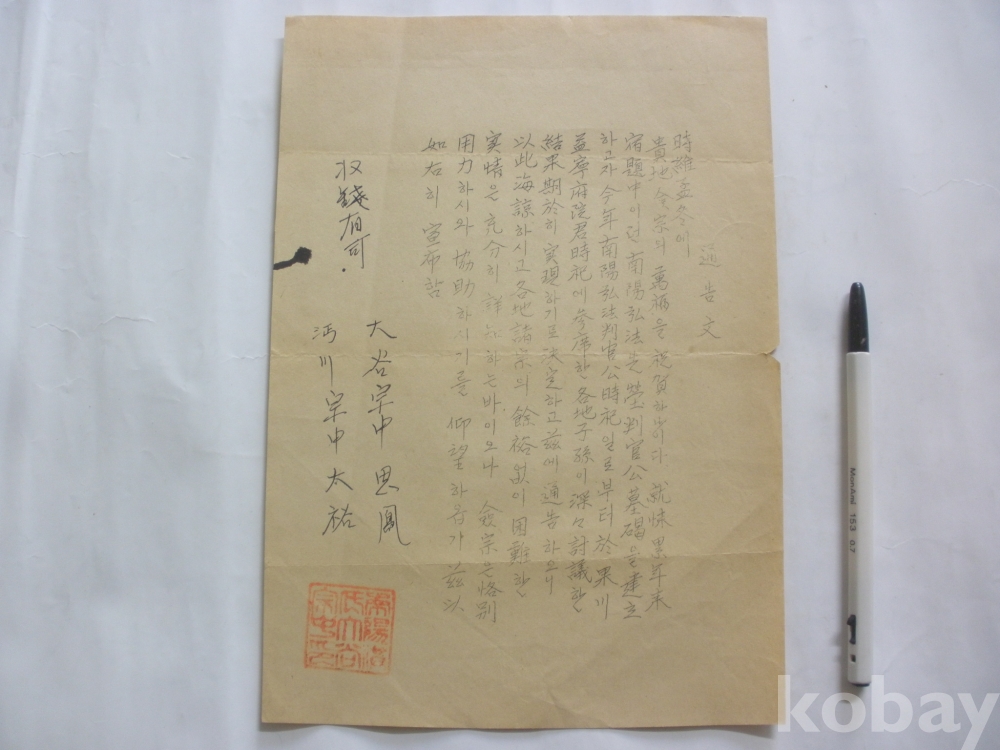 通告文
時維孟冬에
貴地 僉宗의 萬福을 祝賀하나이다 就悚 累年來
宿題中이던 南陽弘法 先塋 判官公墓碣을 建立
하고자 今年 南陽弘法 判官公 時祀日로부터 於 栗川
益寧府院君 時祀에 參席한 各地子孫이 深々 討議한
結果 期於히 實現하기로 決定하고 玆에 通告하오니
以此海諒하시고 各地 諸宗의 餘裕없이 困難한
實情은 充分히 詳知하는바이오나 僉宗은 恪別
用力하시와 協助하시기를 仰望하옵기 玆以
如右히 宣布함
收錢有司
大谷宗中 思鳳
沔川宗中 太祐
南陽洪氏大谷宗中之印
MonAmi 153 0.7
kobay